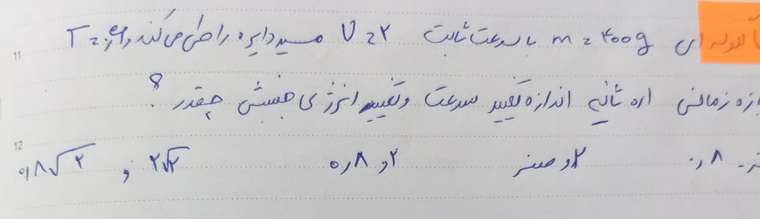 گلوله ای m = ۴۰۰g با سرعت ثابت V = ۲ مسیر دایره را طی می کند و اگر T =
بازه زمانی ۰/۱ ثانیه اندازه تغییر سرعت و تغییر انرژی جنبشی چقدر ؟
۰/۸ ۲ و صفر ۲ و ۰/۸ ۲√۲ و ۰/۸√۲
11
12